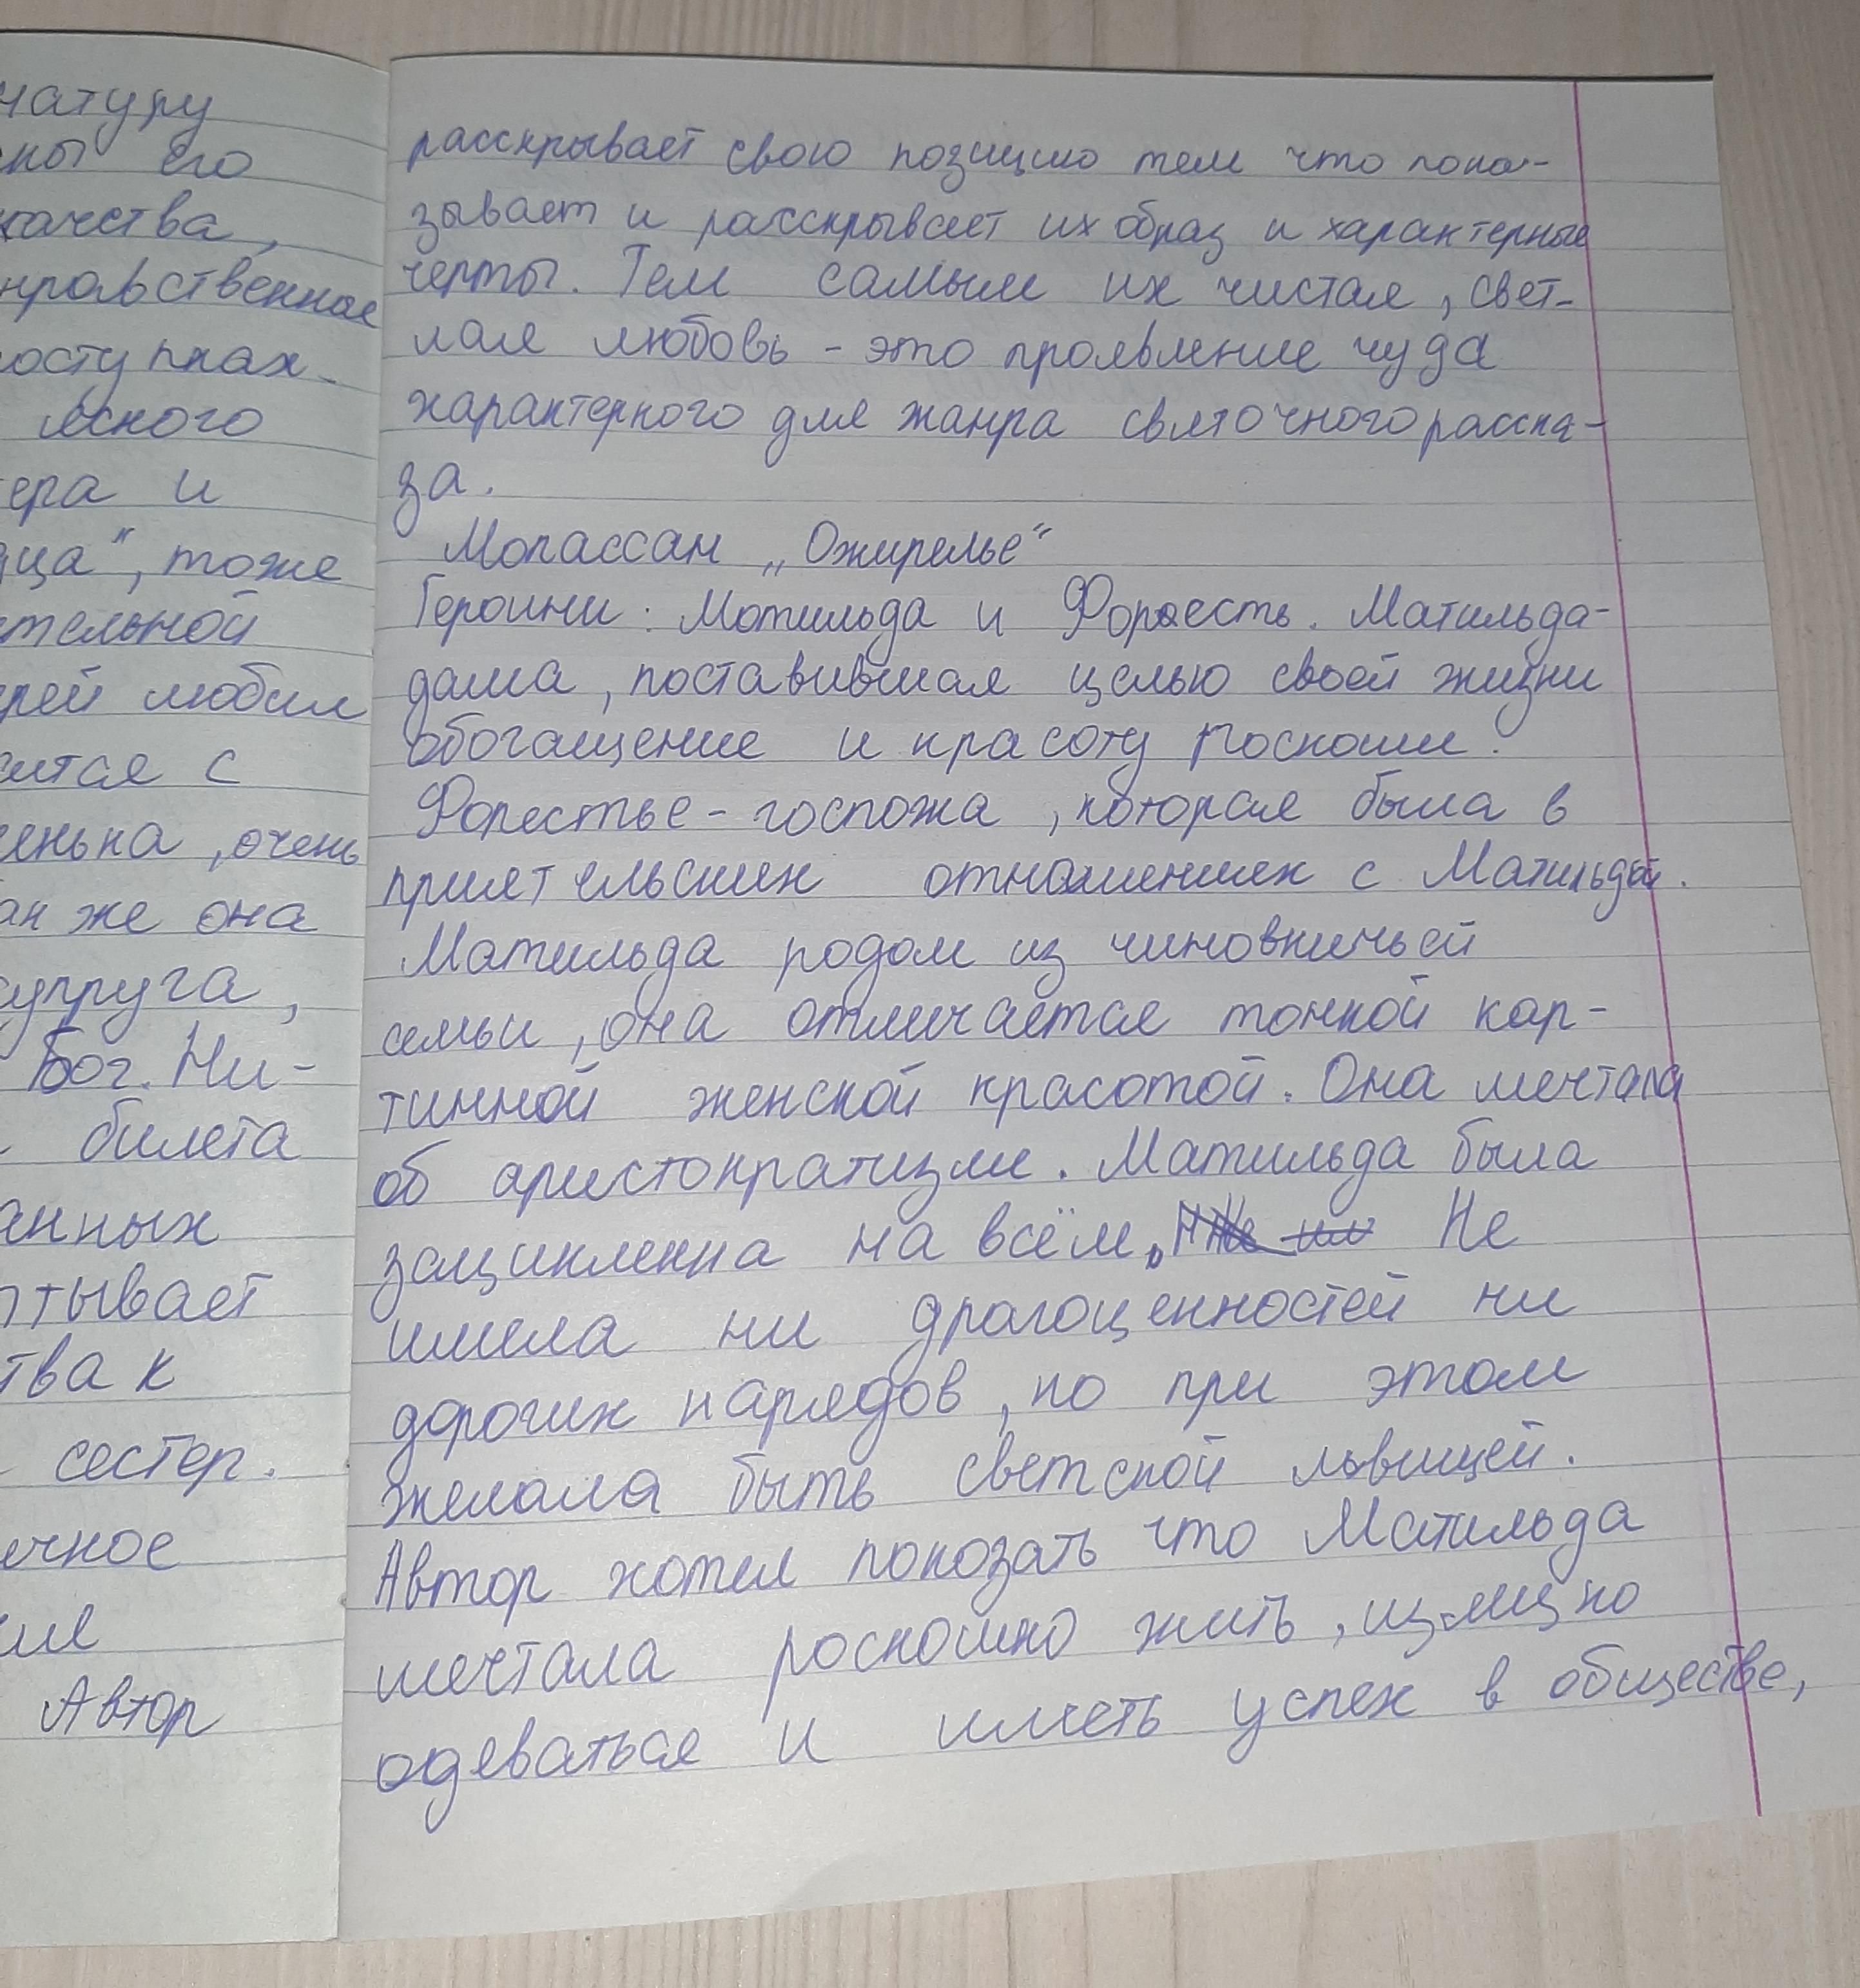 натуру
его
качества,
нравственное
поступках.
ясного
ера и
ца", тоже
ательной
рей любил
сится с
енька, очень
ак же она
супруга,
Бог. Ни-
билета
анных
тывает
тва к
сестер.
ечное
Автор
расскрывает свою позицию тем что пока-
зывает и расскрывает их образ и характерные
черты. Тем самым их чистая, свет-
лая любовь - это проявление чуда
характерного для жанра святочного расска-
за.
Мопассан „Ожирелье“
Героини: Матильда и Форесть. Матильда-
дама, поставившая целью своей жизни
обогащение и красоту роскоши.
Форестье - госпожа, которая была в
приятельских отношениях с Матильдой.
Матильда родом из чиновничьей
семьи, она отличается тонкой кар-
тинной женской красотой. Она мечтала
об аристократизме. Матильда была
зациклена на всём. Не
имела ни драгоценностей ни
дорогих нарядов, но при этом
желала быть светской львицей.
Автор хотел показать что Матильда
мечтала роскошно жить, изящно
одеваться и иметь успех в обществе,